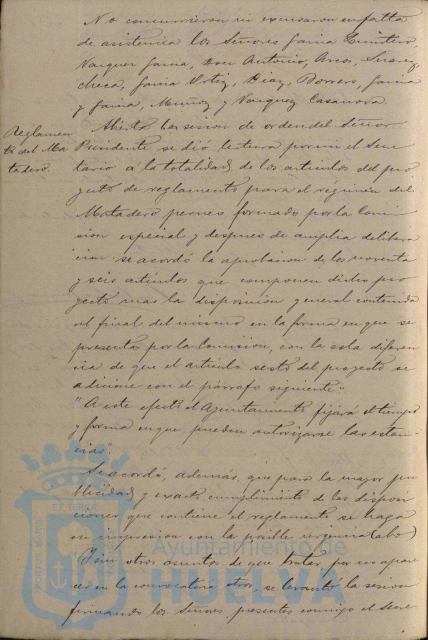 No concurrieron ni excusaron su falta
de asistencia los Señores García Quintero,
Vazquez Gama, Don Antonio, Arcos, Suarez,
checa, García Ortiz, Diaz, Borrero, García
y García, Muñoz y Vazquez Casanova.
Reglamen
to del Ma
tadero.
Abierta la sesion de orden del Señor
Presidente se dió lectura por mi el Secre
tario á la totalidad de los artículos del pro
yecto de reglamento para el regimen del
Matadero formado por la Comi
sion especial y despues de amplia delibera
cion se acordó la aprobacion de los noventa
y seis artículos que componen dicho pro
yecto mas la disposicion general contenida
al final del mismo en la forma en que se
presenta por la Comision, con la sola diferen
cia de que el artículo sesto del proyecto se
adicione con el párrafo siguiente:
"A este efecto el Ayuntamiento fijará el tiempo
y forma en que pueden autorizarse las estan
cias.
Se acordó, además, que para la mayor pu
blicidad y exacto cumplimiento de las disposi
ciones que contiene el reglamento se haga
su impresion con la posible urgencia
Y sin otros asuntos de que tratar, por no apare
cer en la convocatoria otros, se levantó la sesion
firmando los Señores presentes conmigo el Secre
Ayuntamiento de
HUELVA